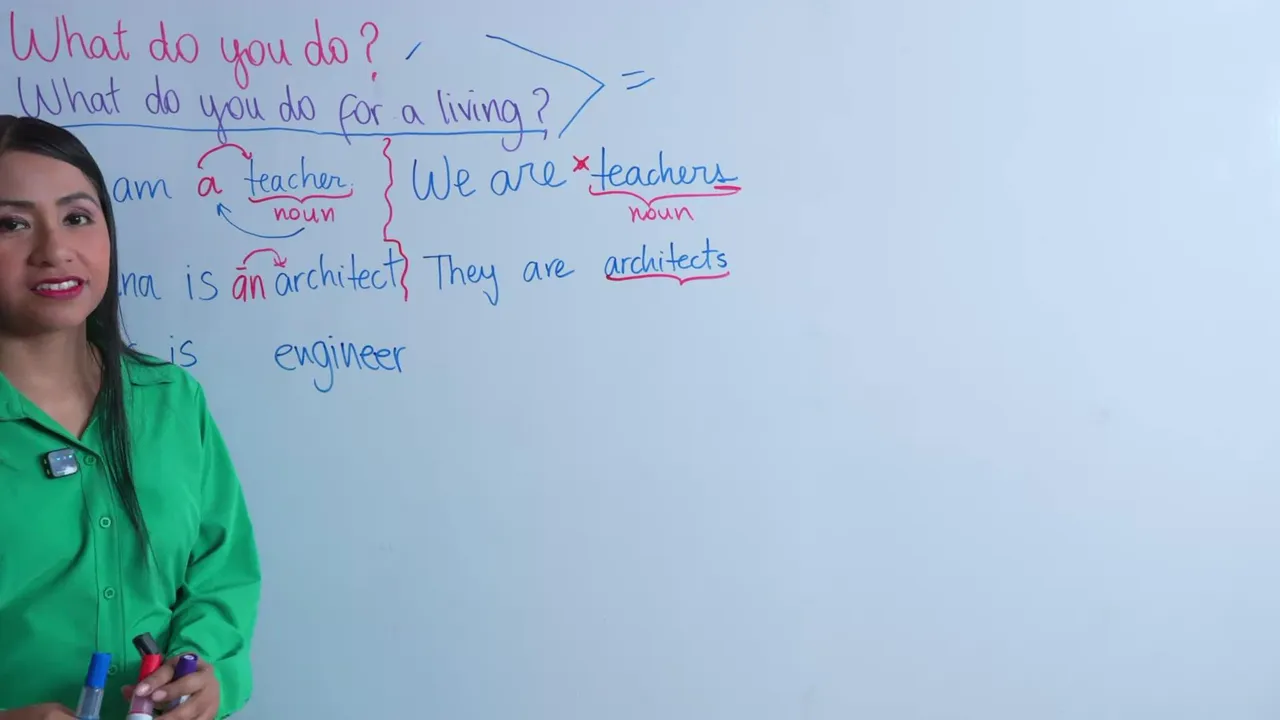 What do you do?
What do you do for a living?
am a teacher. We are teachers
noun noun
is an architect They are architects
is engineer